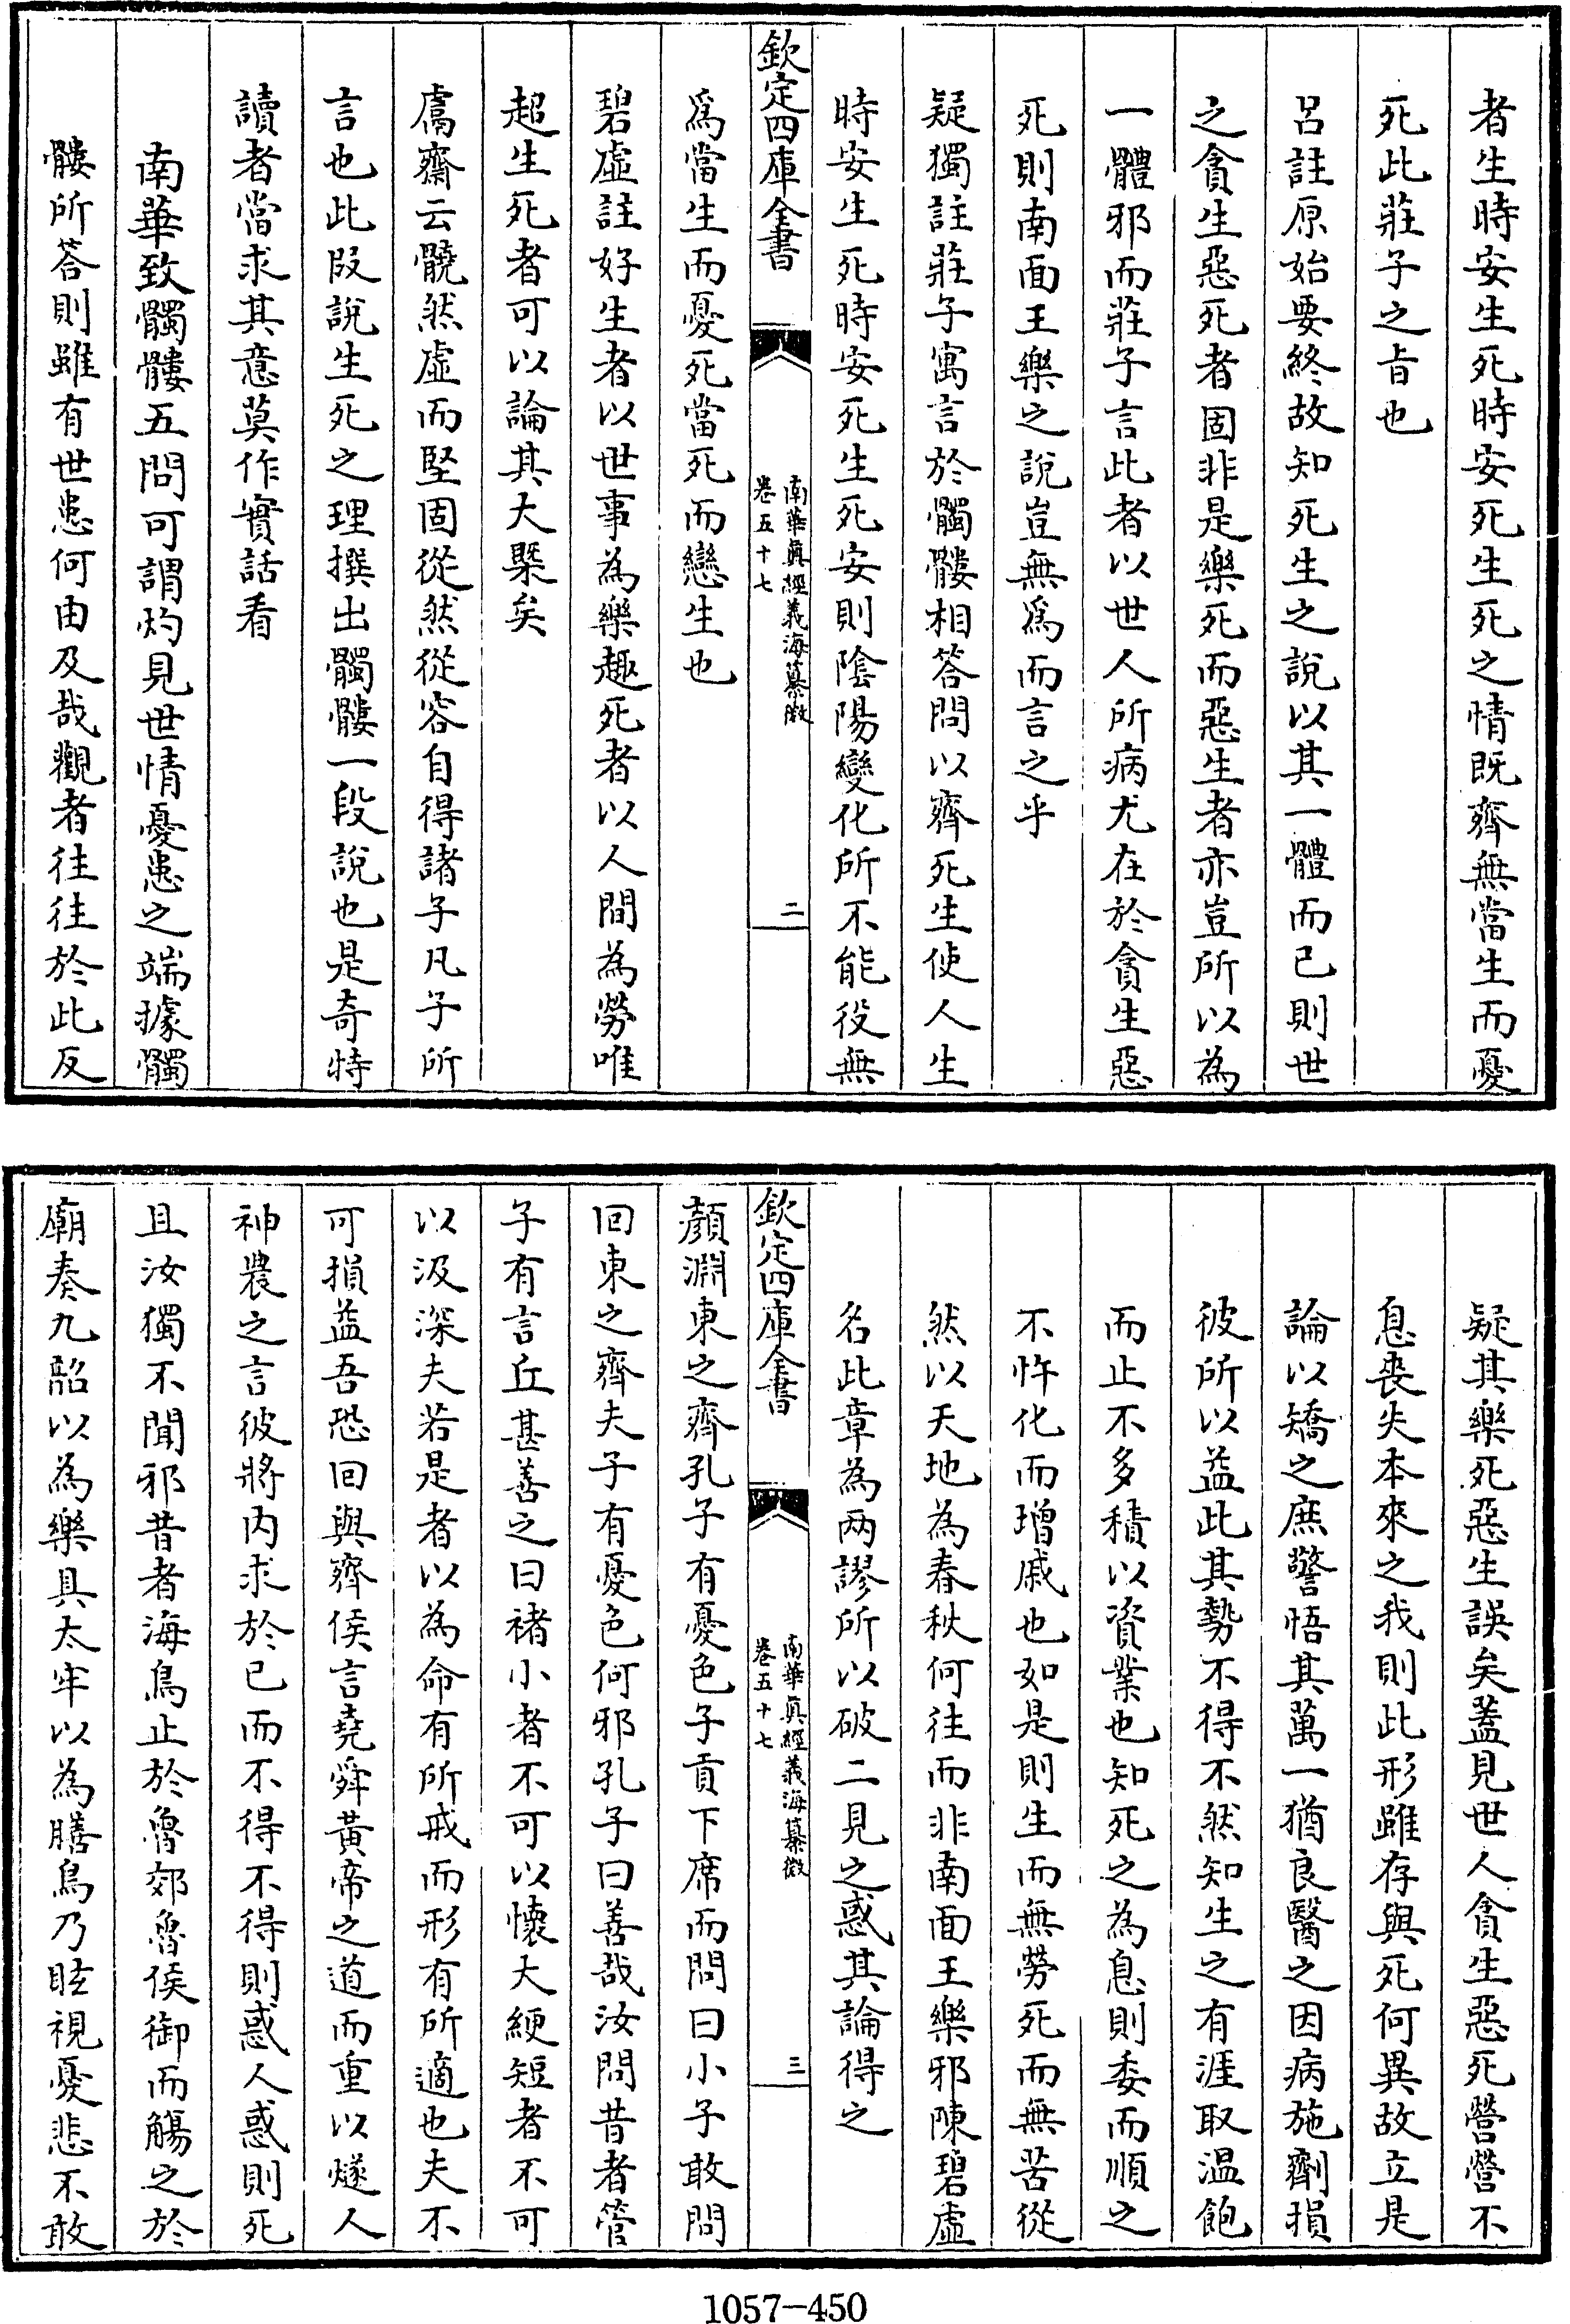 者生時安生死時安死生死之情既齊無當生而憂
死此莊子之㫖也
呂註原始要終故知死生之說以其一體而已則世
之貪生惡死者固非是樂死而惡生者亦豈所以為
一體邪而莊子言此者以世人所病尤在於貪生惡
死則南面王樂之說豈無爲而言之乎
疑獨註莊子寓言於髑髏相答問以齊死生使人生
時安生死時安死生死安則陰陽變化所不能役無
欽定四庫全書
南華真經義海纂微
卷五十七
二
爲當生而憂死當死而戀生也
碧虛註好生者以世事為樂趣死者以人間為勞唯
超生死者可以論其大槩矣
鬳齋云髐然虛而堅固從然從容自得諸子凡子所
言也此段說生死之理撰出髑髏一段說也是奇特
讀者當求其意莫作實話看
南華致髑髏五問可謂灼見世情憂患之端據髑
髏所答則雖有世患何由及哉觀者往往於此反
疑其樂死惡生誤矣蓋見世人貪生惡死營營不
息喪失本來之我則此形雖存與死何異故立是
論以矯之庶警悟其萬一猶良醫之因病施劑損
彼所以益此其勢不得不然知生之有涯取温飽
而止不多積以資業也知死之為息則委而順之
不忤化而增戚也如是則生而無勞死而無苦從
然以天地為春秋何往而非南面王樂邪陳碧虛
名此章為两謬所以破二見之惑其論得之
欽定四庫全書
南華真經義海纂微
卷五十七
三
顏淵東之齊孔子有憂色子貢下席而問曰小子敢問
回東之齊夫子有憂色何邪孔子曰善哉汝問昔者管
子有言丘甚善之曰褚小者不可以懷大綆短者不可
以汲深夫若是者以為命有所戒而形有所適也夫不
可損益吾恐回與齊侯言堯舜黃帝之道而重以燧人
神農之言彼將内求於已而不得不得則惑人惑則死
且汝獨不聞邪昔者海鳥止於魯郊魯侯御而觴之於
廟奏九韶以為樂具太牢以為膳鳥乃眩視憂悲不敢
1057-450